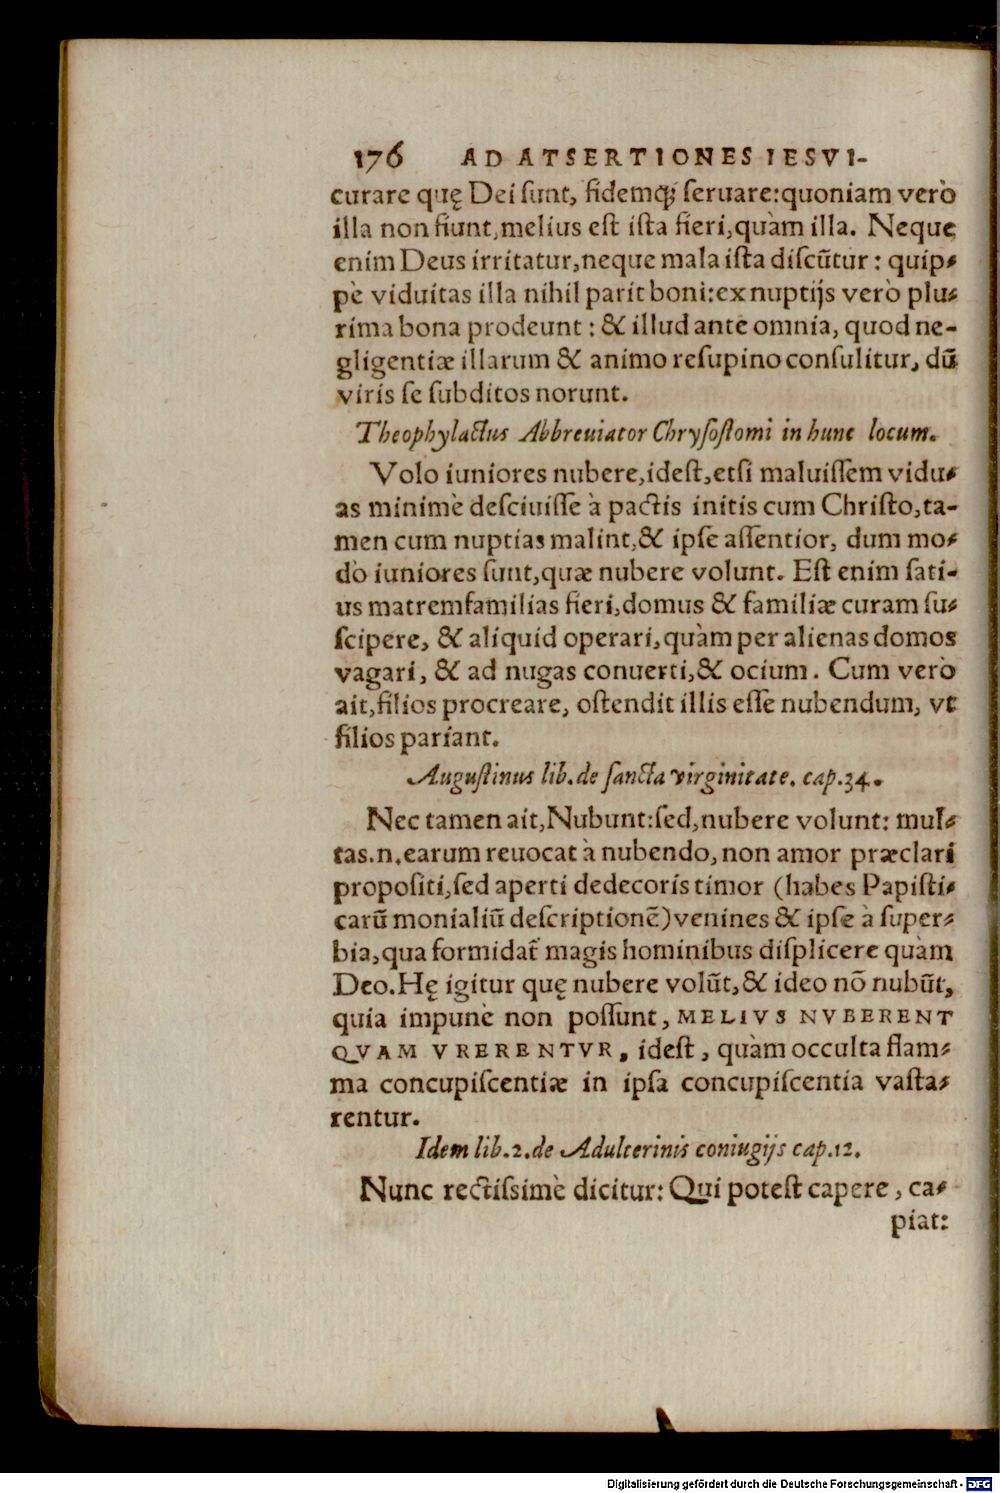 176 AD ATSERTIONES IESVI-
curare quę Dei sunt, fidemq́; seruare: quoniam verò
illa non fiunt, melius est ista fieri, quàm illa. Neque
enim Deus irritatur, neque mala ista discũtur: quip-
pè viduitas illa nihil parit boni: ex nuptijs verò plu-
rima bona prodeunt: & illud ante omnia, quod ne-
gligentiæ illarum & animo resupino consulitur, dũ
viris se subditos norunt.
Theophylactus Abbreuiator Chrysostomi in hunc locum.
Volo iuniores nubere, idest, etsi maluissem vidu-
as minimè desciuisse à pactis initis cum Christo, ta-
men cum nuptias malint, & ipse assentior, dum mo-
dò iuniores sunt, quæ nubere volunt. Est enim sati-
us matremfamilias fieri, domus & familiæ curam su-
scipere, & aliquid operari, quàm per alienas domos
vagari, & ad nugas conuerti, & ocium. Cum verò
ait, filios procreare, ostendit illis esse nubendum, vt
filios pariant.
Augustinus lib. de sancta virginitate. cap. 34.
Nec tamen ait, Nubunt: sed, nubere volunt: mul-
tas .n. earum reuocat à nubendo, non amor præclari
propositi, sed aperti dedecoris timor (habes Papisti-
carũ monialiũ descriptionẽ) venines & ipse à super-
bia, qua formidat̃ magis hominibus displicere quàm
Deo. Hę igitur quę nubere volũt, & ideo nõ nubũt,
quia impunè non possunt, MELIVS NVBERENT
QVAM VRERENTVR, idest, quàm occulta flam-
ma concupiscentiæ in ipsa concupiscentia vasta-
rentur.
Idem lib. 2. de Adulterinis coniugijs cap. 12.
Nunc rectissimè dicitur: Qui potest capere, ca-
piat:
Digitalisierung gefördert durch die Deutsche Forschungsgemeinschaft - DFG